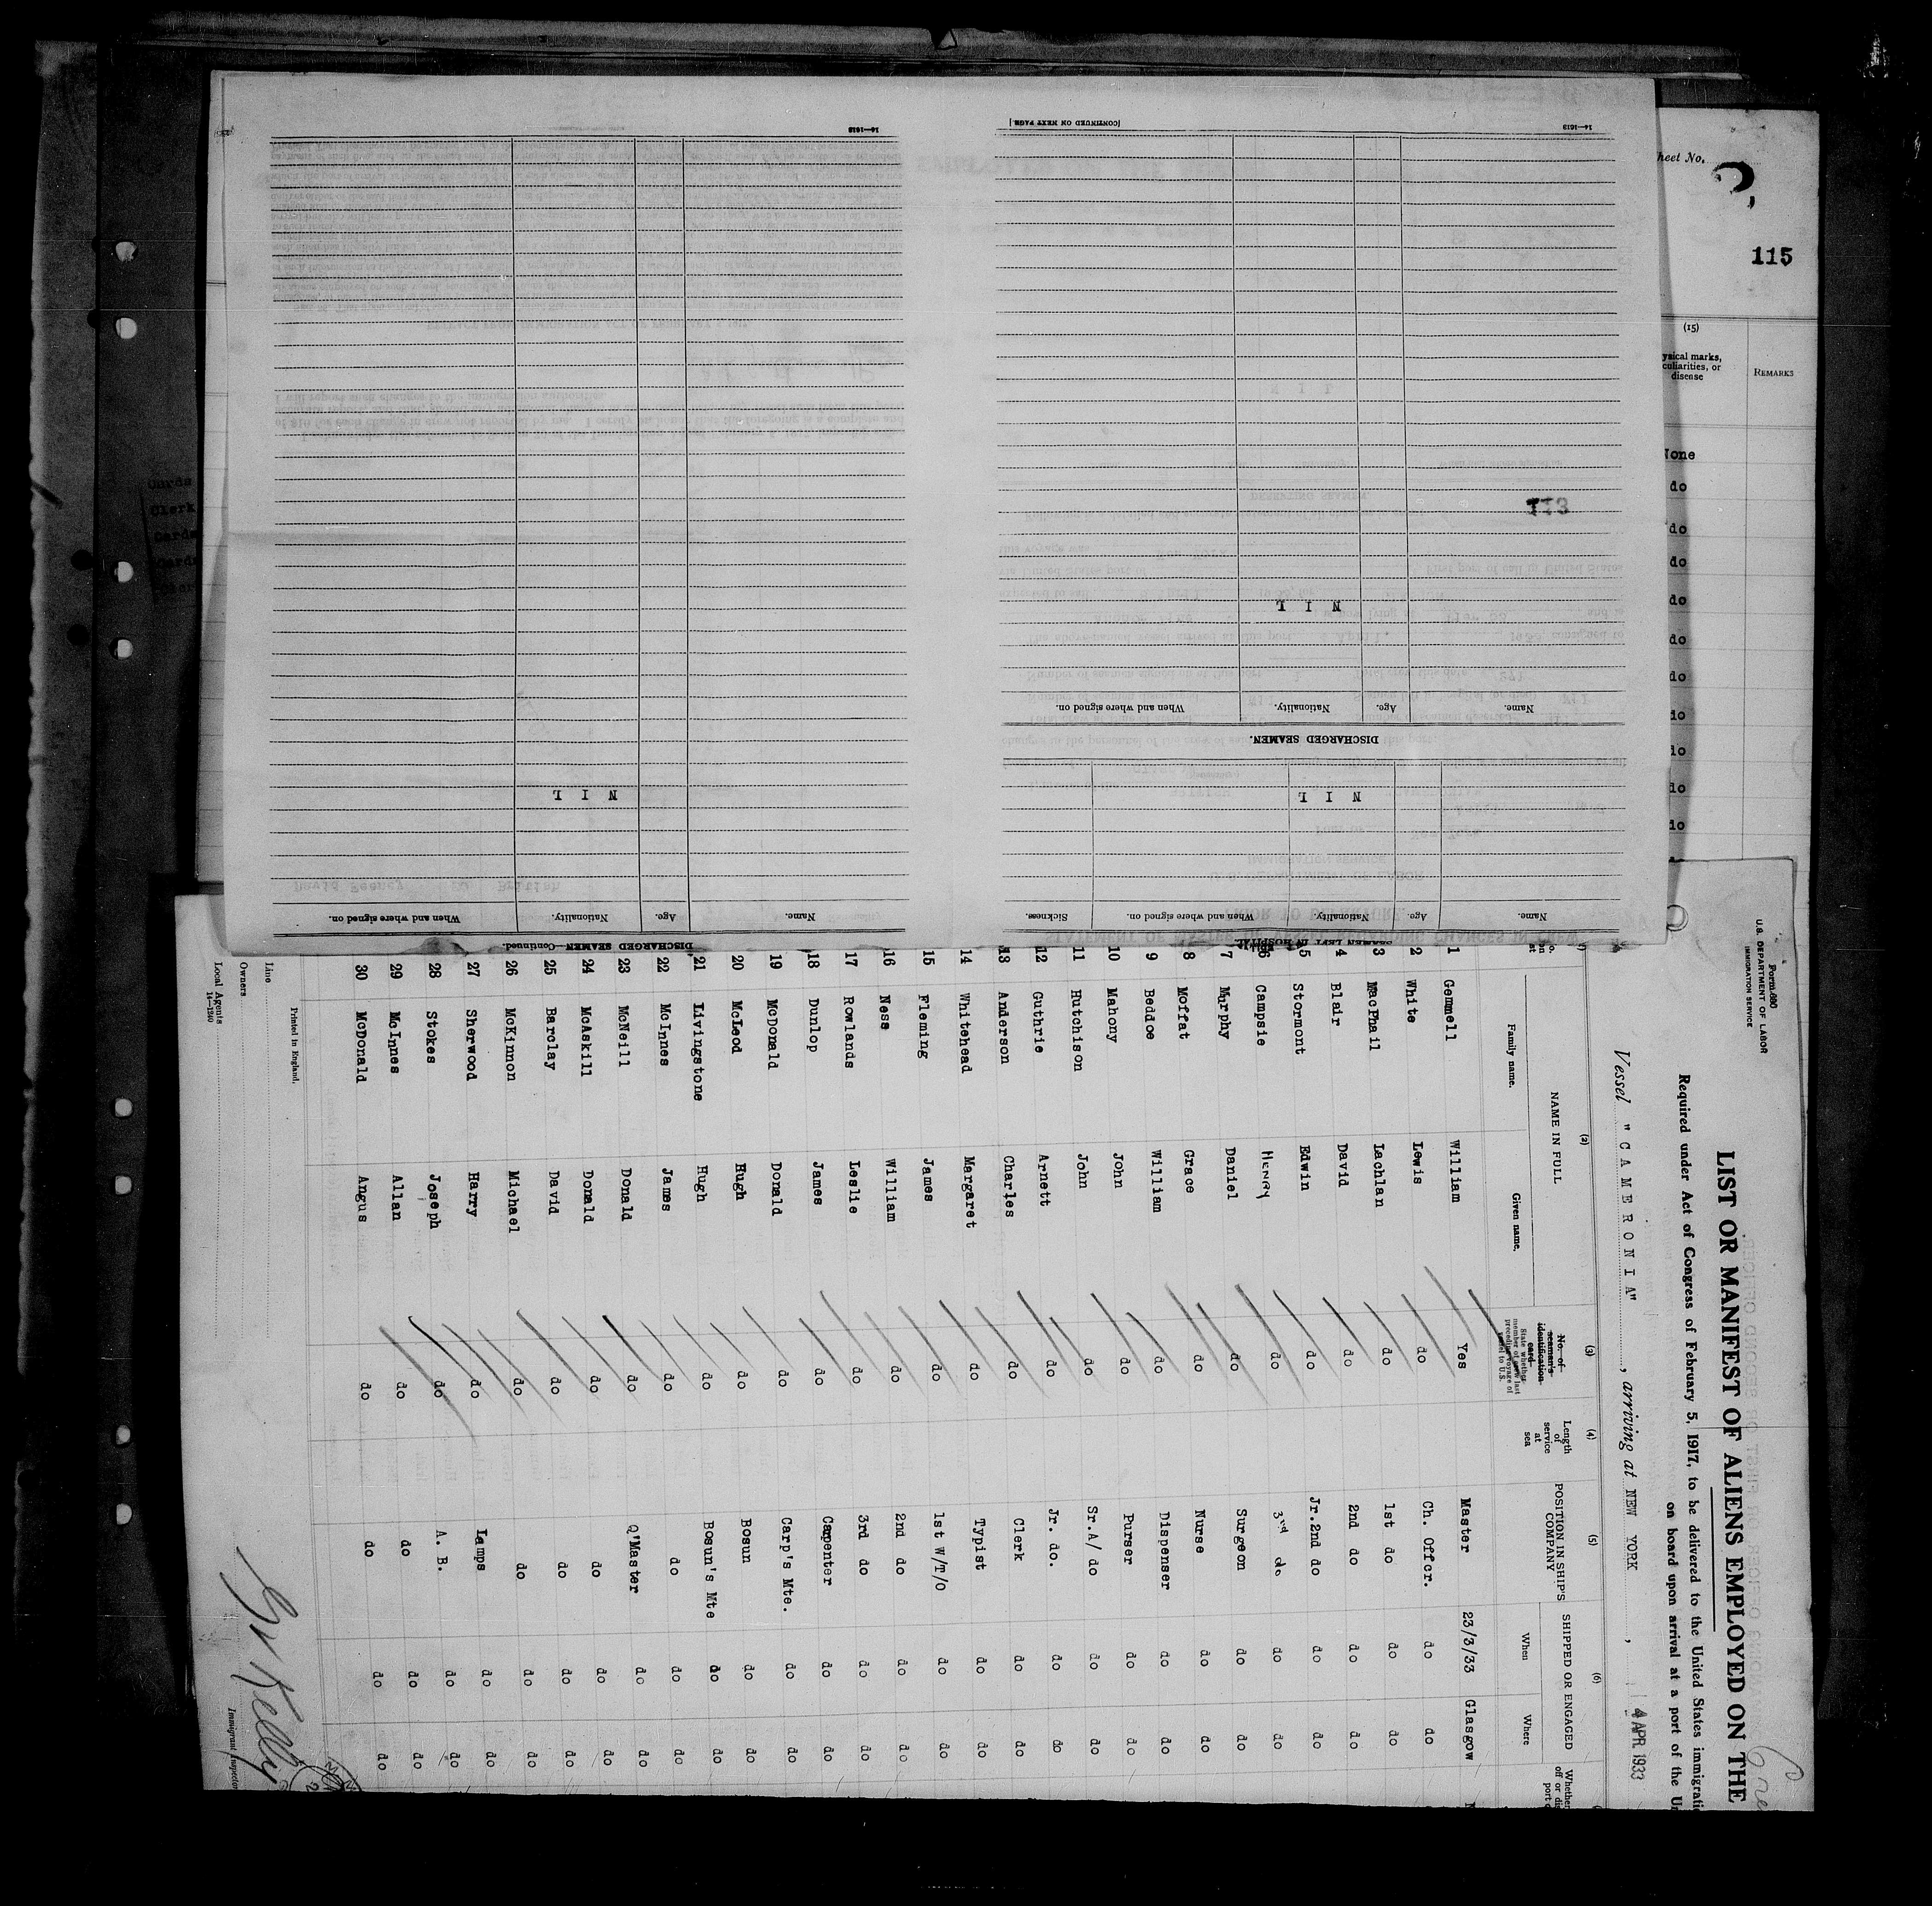 Form 680
U.S. DEPARTMENT OF LABOR
IMMIGRATION SERVICE
LIST OR MANIFEST OF ALIENS EMPLOYED ON THE
Required under Act of Congress of February 5, 1917, to be delivered to the United States immigratio
on board upon arrival at a port of the Un
Vessel "CAMERONIA", arriving at NEW YORK, 4 APR 1933
(2) (3) (4) (5) (6)
NAME IN FULL
Family name. Given name.
No. of seaman's identification card
State whether member of crew last preceding voyage of vessel to U.S.
Length of service at sea
POSITION IN SHIP'S COMPANY
SHIPPED OR ENGAGED
When Where
1 Gemmell William Yes Master 23/3/33 Glasgow
2 White Lewis do Ch. Offcr. do do
3 MacPhail Lachlan do 1st do do do
4 Blair David do 2nd do do do
5 Stormont Edwin do Jr.2nd do do do
6 Campsie HENRY do 3rd do do do
7 Murphy Daniel do Surgeon do do
8 Moffat Grace do Nurse do do
9 Beddoe William do Dispenser do do
10 Mahony John do Purser do do
11 Hutchison John do Sr.A/ do do do
12 Guthrie Arnett do Jr. do. do do
13 Anderson Charles do Clerk do do
14 Whitehead Margaret do Typist do do
15 Fleming James do 1st W/T/O do do
16 Ness William do 2nd do do do
17 Rowlands Leslie do 3rd do do do
18 Dunlop James do Carpenter do do
19 McDonald Donald do Carp's Mte. do do
20 McLeod Hugh do Bosun do do
21 Livingstone Hugh do Bosun's Mte do do
22 McInnes James do do do do
23 McNeill Donald do Q'Master do do
24 McAskill Donald do do do do
25 Barclay David do do do do
26 McKinnon Michael do do do do
27 Sherwood Harry do Lamps do do
28 Stokes Joseph do A. B. do do
29 McInnes Allan do do do do
30 McDonald Angus do do do do
Printed in England.
Line
Owners
Local Agents
14—1240
Immigrant Inspector
SEAMEN LEFT IN HOSPITAL.
Name. Age. Nationality. When and where signed on. Sickness.
N I L
DISCHARGED SEAMEN.
Name. Age. Nationality. When and where signed on.
N I L
14—1613
[CONTINUED ON NEXT PAGE]
DISCHARGED SEAMEN—Continued.
Name. Age. Nationality. When and where signed on.
N I L
14—1613
113
heet No.
115
(15)
ysical marks,
culiarities, or
disease
REMARKS
None
do
do
do
do
do
do
do
do
do
do